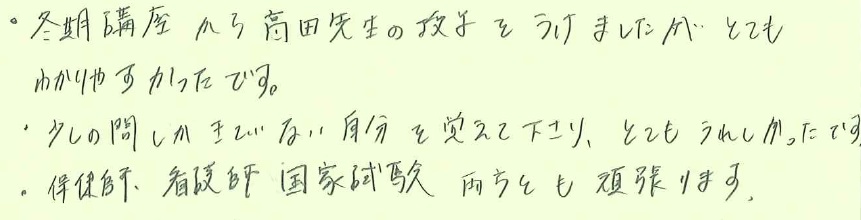 ・冬期講座から高田先生の授業をうけましたが とても
わかりやすかったです。
・少しの間しかきていない自分を覚えて下さり、とてもうれしかったです
・保健師、看護師 国家試験 両方とも 頑張ります。